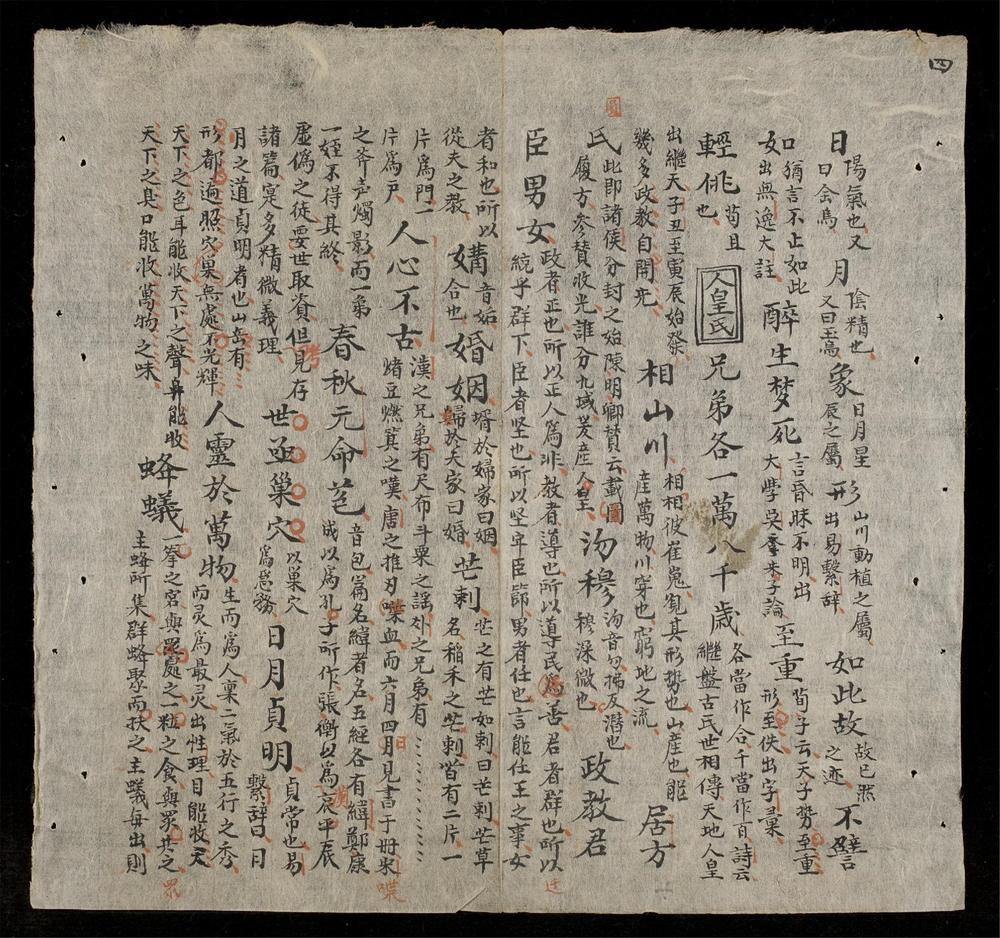 四
日 陽氣也又曰金烏 月 陰精也又曰玉高 象 日月星辰之屬 形 山川動植之屬出易繫辭 如此故 故已然之迹 不譬
如 猶言不止如此出無逸大註 醉生梦死 言昏昧不明出大學吳季朱子論 至重 荀子云天子勢至重形至佚出字彙
輕佻 苟且也 人皇氏 兄弟各一萬八千歲 各當作合千當作百詩云繼盤古氏世相傳天地人皇
出繼天子丑至寅辰始發幾多政教自開先 相山川 相相彼崔嵬観其形勢也山產也能產萬物川穿也窮地之流 居方
圓
氏 此即諸侯分封之始陳明卿賛云載圖履方參賛收光誰分九域爰產人皇 沕穆 沕音勿拂友潛也穆深微也 政教君
臣男女 政者正也所以正人為非教者導也所以導民為善君者群也所以統乎群下臣者坚也所以坚牢臣節男者任也言能仕王之事女
者和也所以從夫之教 媾 音姤合也 婚姻 壻於婦家曰姻婦於夫家曰婚 芒刺 芒之有芒如刺曰芒刺芒草名稻禾之芒刺皆有二片一
片為門一片為戶 人心不古 漢之兄弟有尺布斗粟之謡外之兄弟有煑豆燃萁之嘆唐之推刃喋血而六月四月見書于册宋
之斧声燭影而一弟一姪不得其終 春秋元命苞 音包篇名緯者名五經各有緯鄭康成以為孔子所作張衡以為哀平辰
虛偽之徒要世取資但見存諸篇寔多精微義理 世亟巢穴 以巢穴為急務 日月貞明 貞常也易繫辭曰日
月之道貞明者也山岳有形都遍照穴巢無處不光輝 人靈於萬物 生而為人稟二氣於五行之秀而灵為最灵出性理目能收天
天下之色耳能收天下之聲鼻能收天下之臭口能收萬物之味 蜂蟻 一拳之宮與眾處之一粒之食與眾共之主蜂所集群蜂聚而扶之主蟻每出則